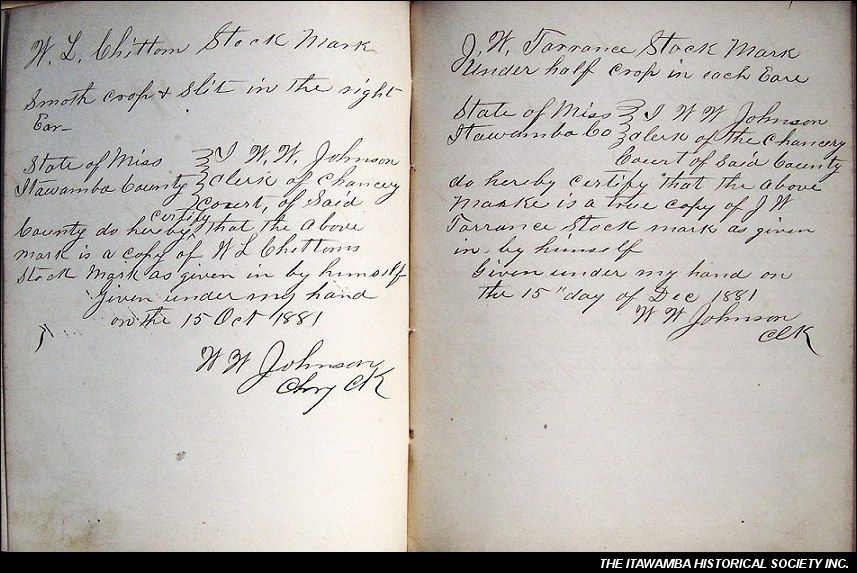 W. L. Chittom Stock Mark
Smoth crop & Slit in the right
Ear-
State of Miss } I W. W. Johnson
Itawamba County } Clerk of Chancery
} Court, of Said
County do hereby certify that the above
mark is a copy of W L Chittoms
Stock Mark as given in by himself
Given under my hand
on the 15 Oct 1881
W W Johnson
Chry CK
J. W. Tarrance Stock Mark
Under half crop in each Eare
State of Miss } I W W Johnson
Itawamba Co } Clerk of the Chancery
Court of Said County
do hereby certify that the above
Marke is a true copy of J W
Tarrance Stock mark as given
in by himself
Given under my hand on
the 15" day of Dec 1881
W W Johnson
Clk
THE ITAWAMBA HISTORICAL SOCIETY INC.